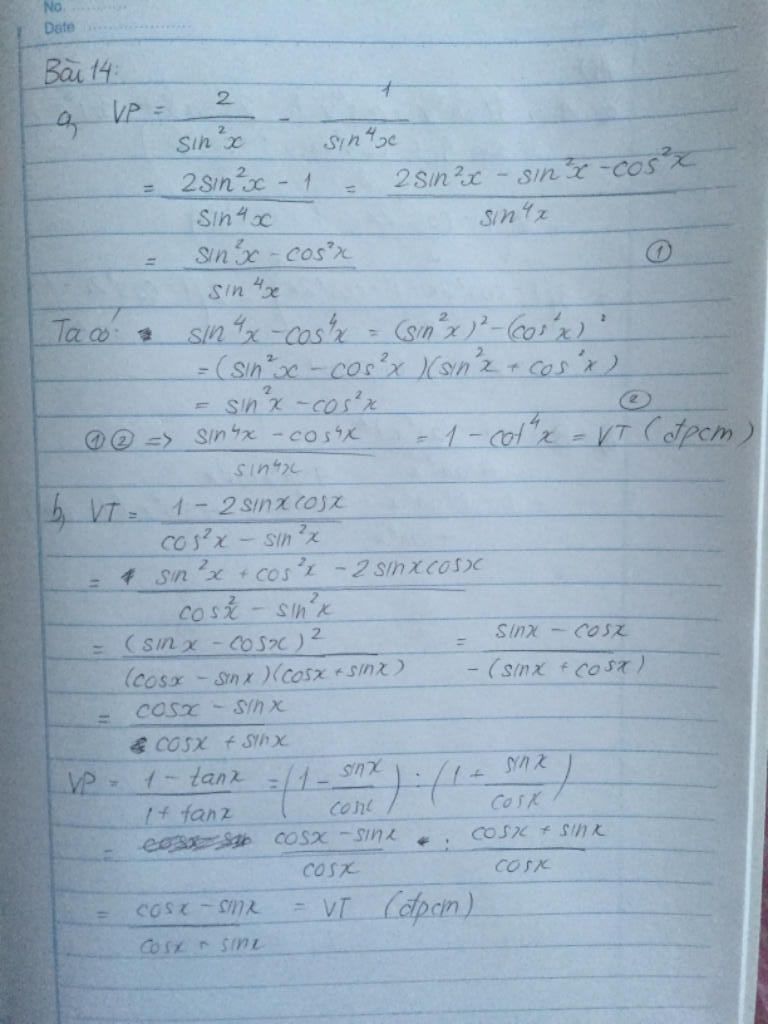 No. ..............
Date ..................
Bài 14:
a, VP = 2/sin²x - 1/sin⁴x
= (2sin²x - 1)/sin⁴x = (2sin²x - sin²x - cos²x)/sin⁴x
= (sin²x - cos²x)/sin⁴x ①
Ta có: sin⁴x - cos⁴x = (sin²x)² - (cos²x)²
= (sin²x - cos²x)(sin²x + cos²x)
= sin²x - cos²x ②
①② => (sin⁴x - cos⁴x)/sin⁴x = 1 - cot⁴x = VT (đpcm)
b, VT = (1 - 2sinxcosx)/(cos²x - sin²x)
= (sin²x + cos²x - 2sinxcosx)/(cos²x - sin²x)
= (sinx - cosx)²/(cosx - sinx)(cosx + sinx) = (sinx - cosx)/-(sinx + cosx)
= (cosx - sinx)/(cosx + sinx)
VP = (1 - tanx)/(1 + tanx) = (1 - sinx/cosx) : (1 + sinx/cosx)
= (cosx - sinx)/cosx : (cosx + sinx)/cosx
= (cosx - sinx)/(cosx + sinx) = VT (đpcm)